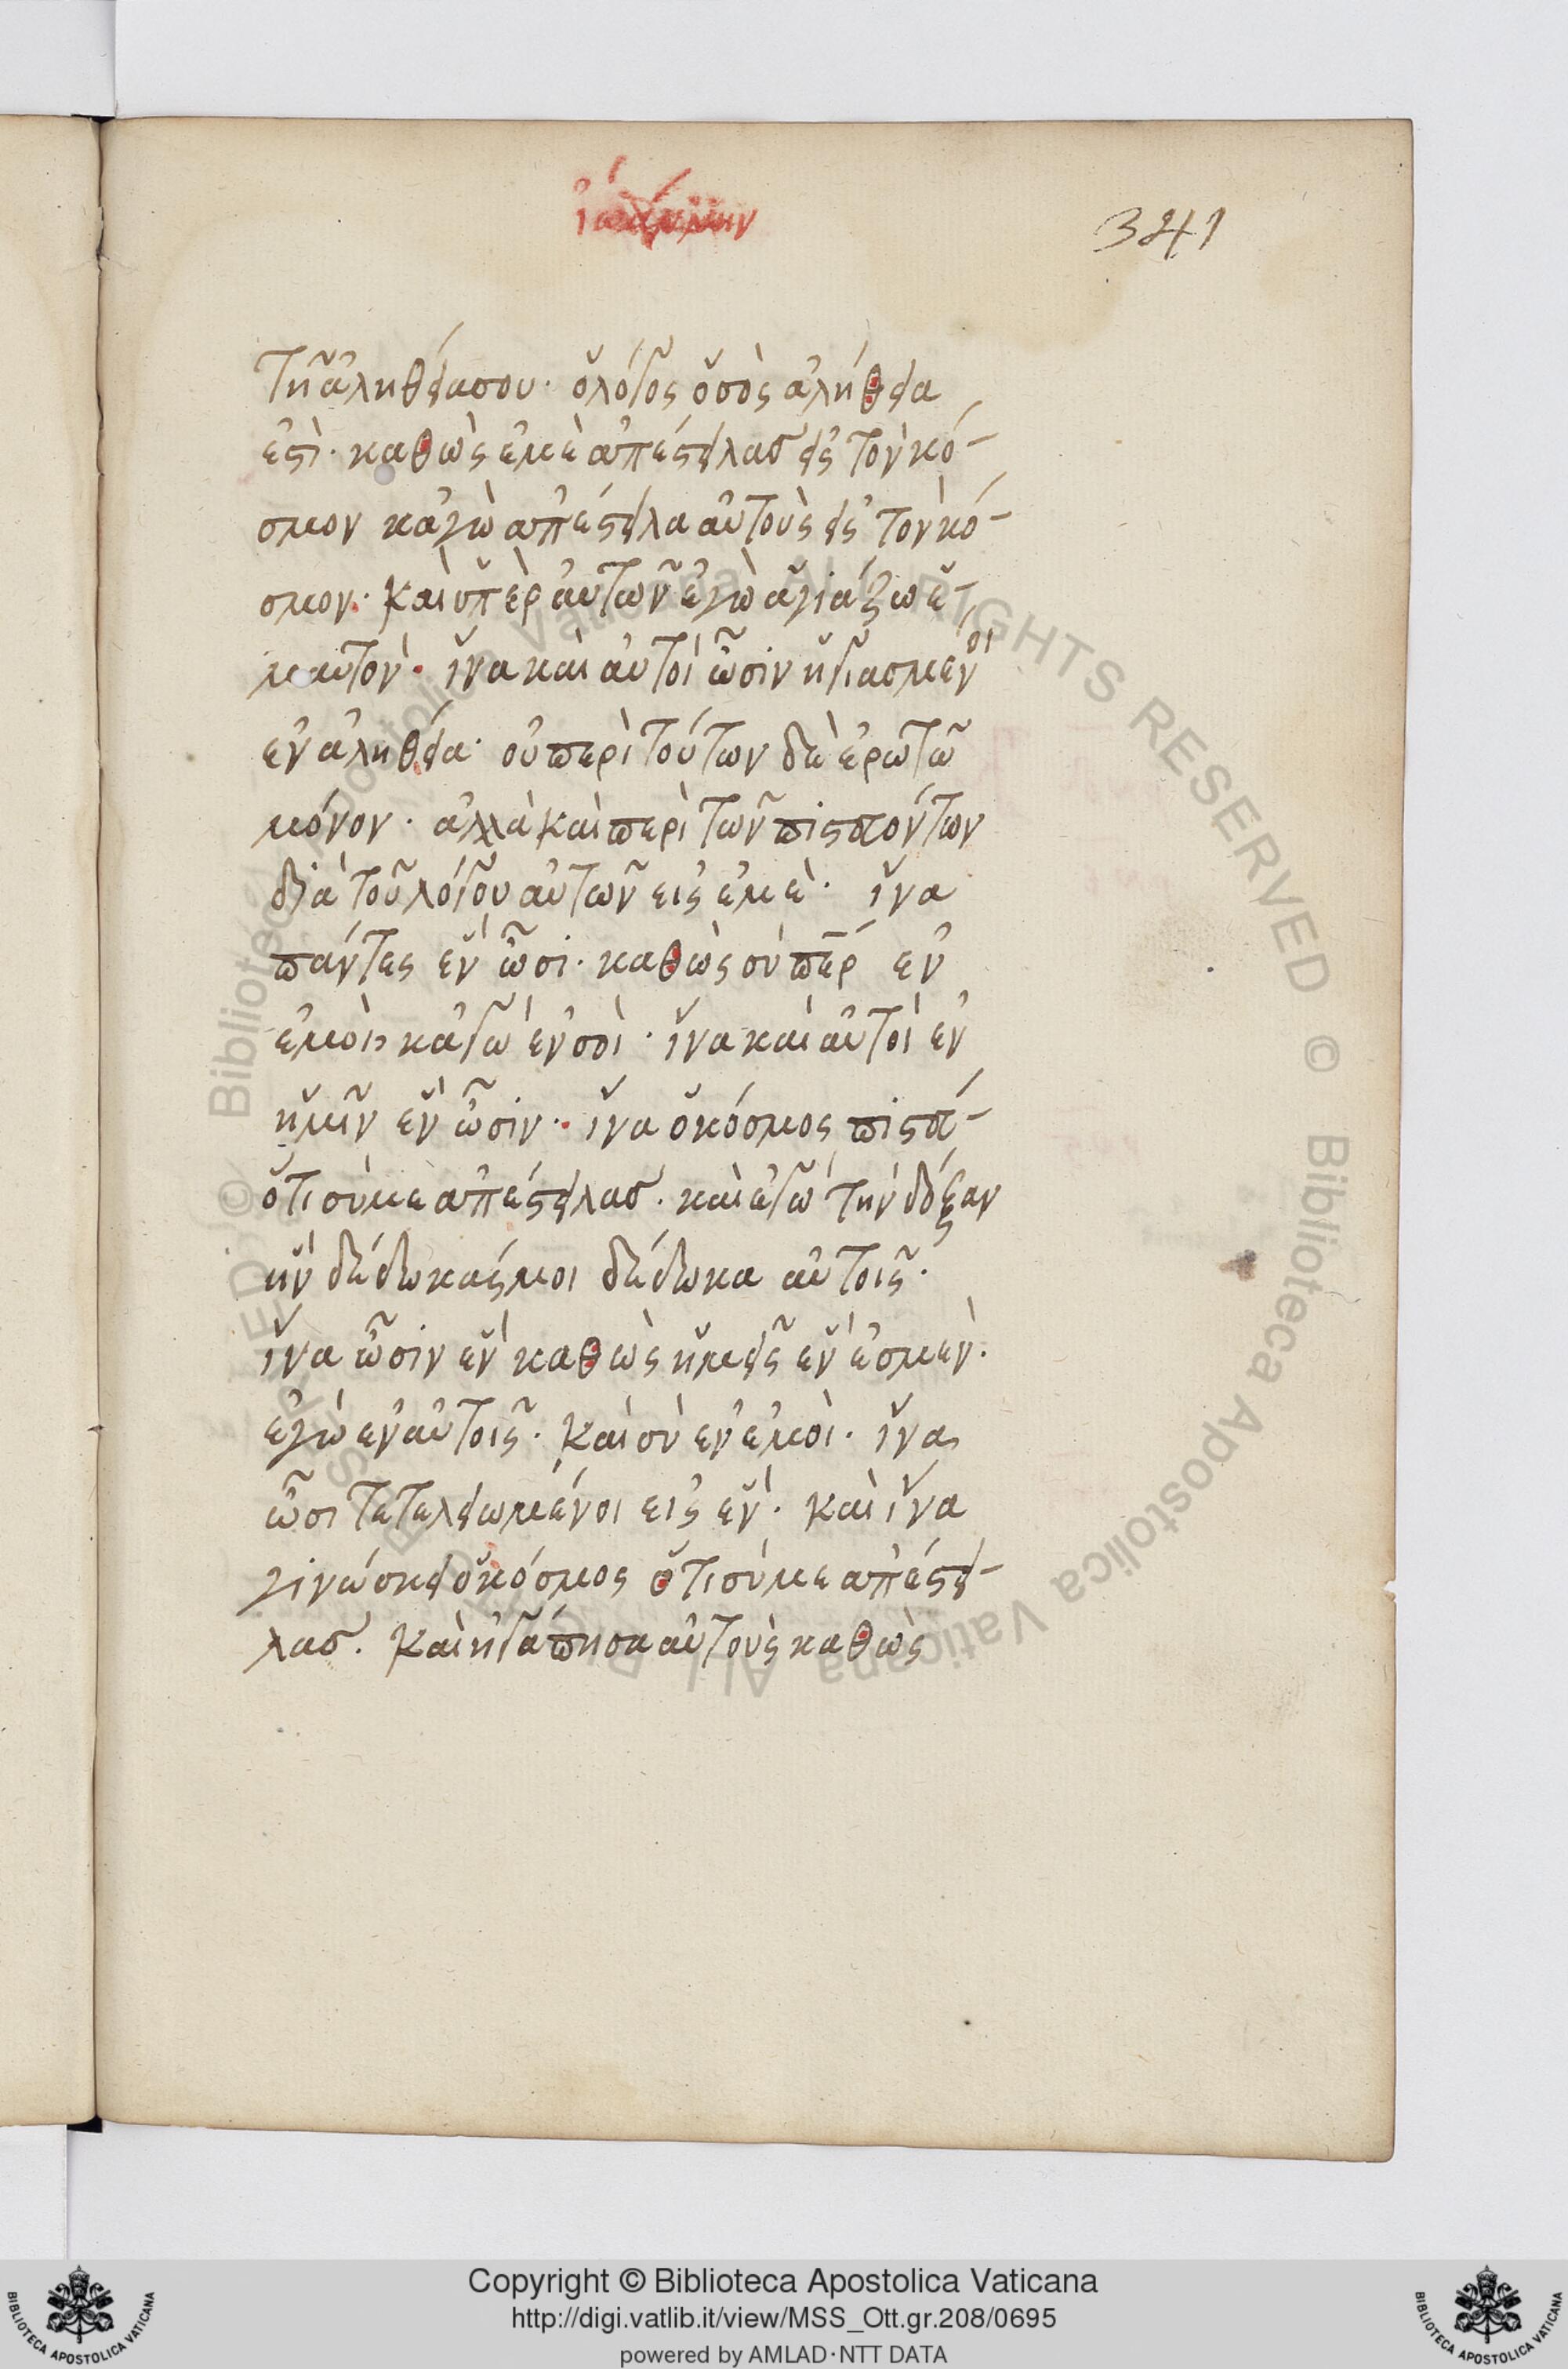 ἰωάννην
341
τῆ ἀληθείασου· ὁ λόγος ὁ σὸς ἀλήθεια
ἐστὶ· καθὼς ἐμὲ ἀπέστειλασ εἰς τὸν κό-
σμον κἀγὼ ἀπέστειλα αὐτοὺς εἰς τὸν κό-
σμον· καὶ ὑπὲρ αὐτῶν ἐγὼ ἁγιάζω ἐ-
μαυτὸν· ἵνα καὶ αὐτοὶ ὦσιν ἡγιασμένοι
ἐν ἀληθεία· οὐ περὶ τούτων δὲ ἐρωτῶ
μόνον· ἀλλὰ καὶ περὶ τῶν πιστευόντων
διὰ τοῦ λόγου αὐτῶν εἰς ἐμὲ· ἵνα
πάντες ἓν ὦσι· καθὼς σὺ περ ἐν
ἐμοὶ, κἀγὼ ἐν σοὶ· ἵνα καὶ αὐτοὶ ἐν
ἡμῖν ἓν ὦσιν· ἵνα ὁ κόσμος πιστεύ-
ὅτι σύ με ἀπέστειλασ· καὶ ἐγὼ τὴν δόξαν
ἣν δέδωκάς μοι δέδωκα αὐτοῖς·
ἵνα ὦσιν ἓν καθὼς ἡμεῖς ἓν ἐσμὲν·
ἐγὼ ἐν αὐτοῖς· καὶ σὺ ἐν ἐμοὶ· ἵνα
ὦσι τετελειωμένοι εἰς ἓν· καὶ ἵνα
γινώσκει ὁ κόσμος ὅτι σύ με ἀπέστει-
λασ· καὶ ἠγάπησα αὐτοὺς καθὼς
Copyright © Biblioteca Apostolica Vaticana
http://digi.vatlib.it/view/MSS_Ott.gr.208/0695
powered by AMLAD·NTT DATA